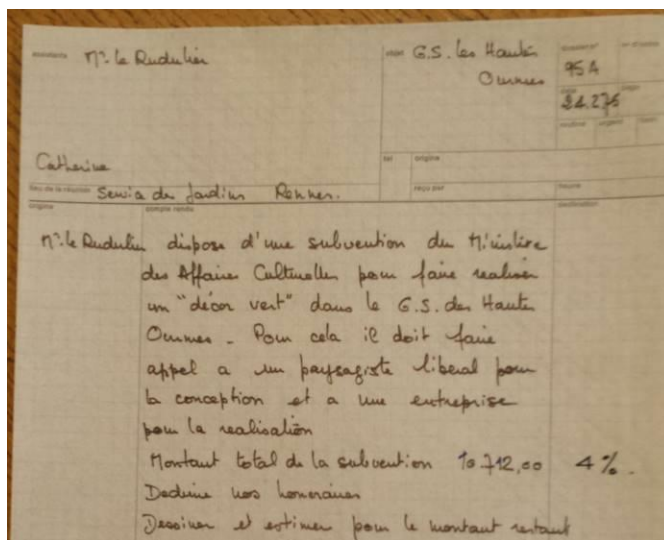 assistants Mr. le Rudulier
objet G.S. les Hautes
Ourmes
dossier n°
95A
date
24.2.76
Catherine
tel origine
lieu de la réunion Service des Jardins Rennes.
reçu par heure
origine compte rendu destination
Mr. le Rudulier dispose d'une subvention du Ministère
des Affaires Culturelles pour faire realiser
un "décor vert" dans le G.S. des Hautes
Ourmes - Pour cela il doit faire
appel a un paysagiste libéral pour
la conception et a une entreprise
pour la realisation
Montant total de la subvention 10.712,00 4%.
Deduire nos honoraires
Dessiner et estimer pour le montant restant